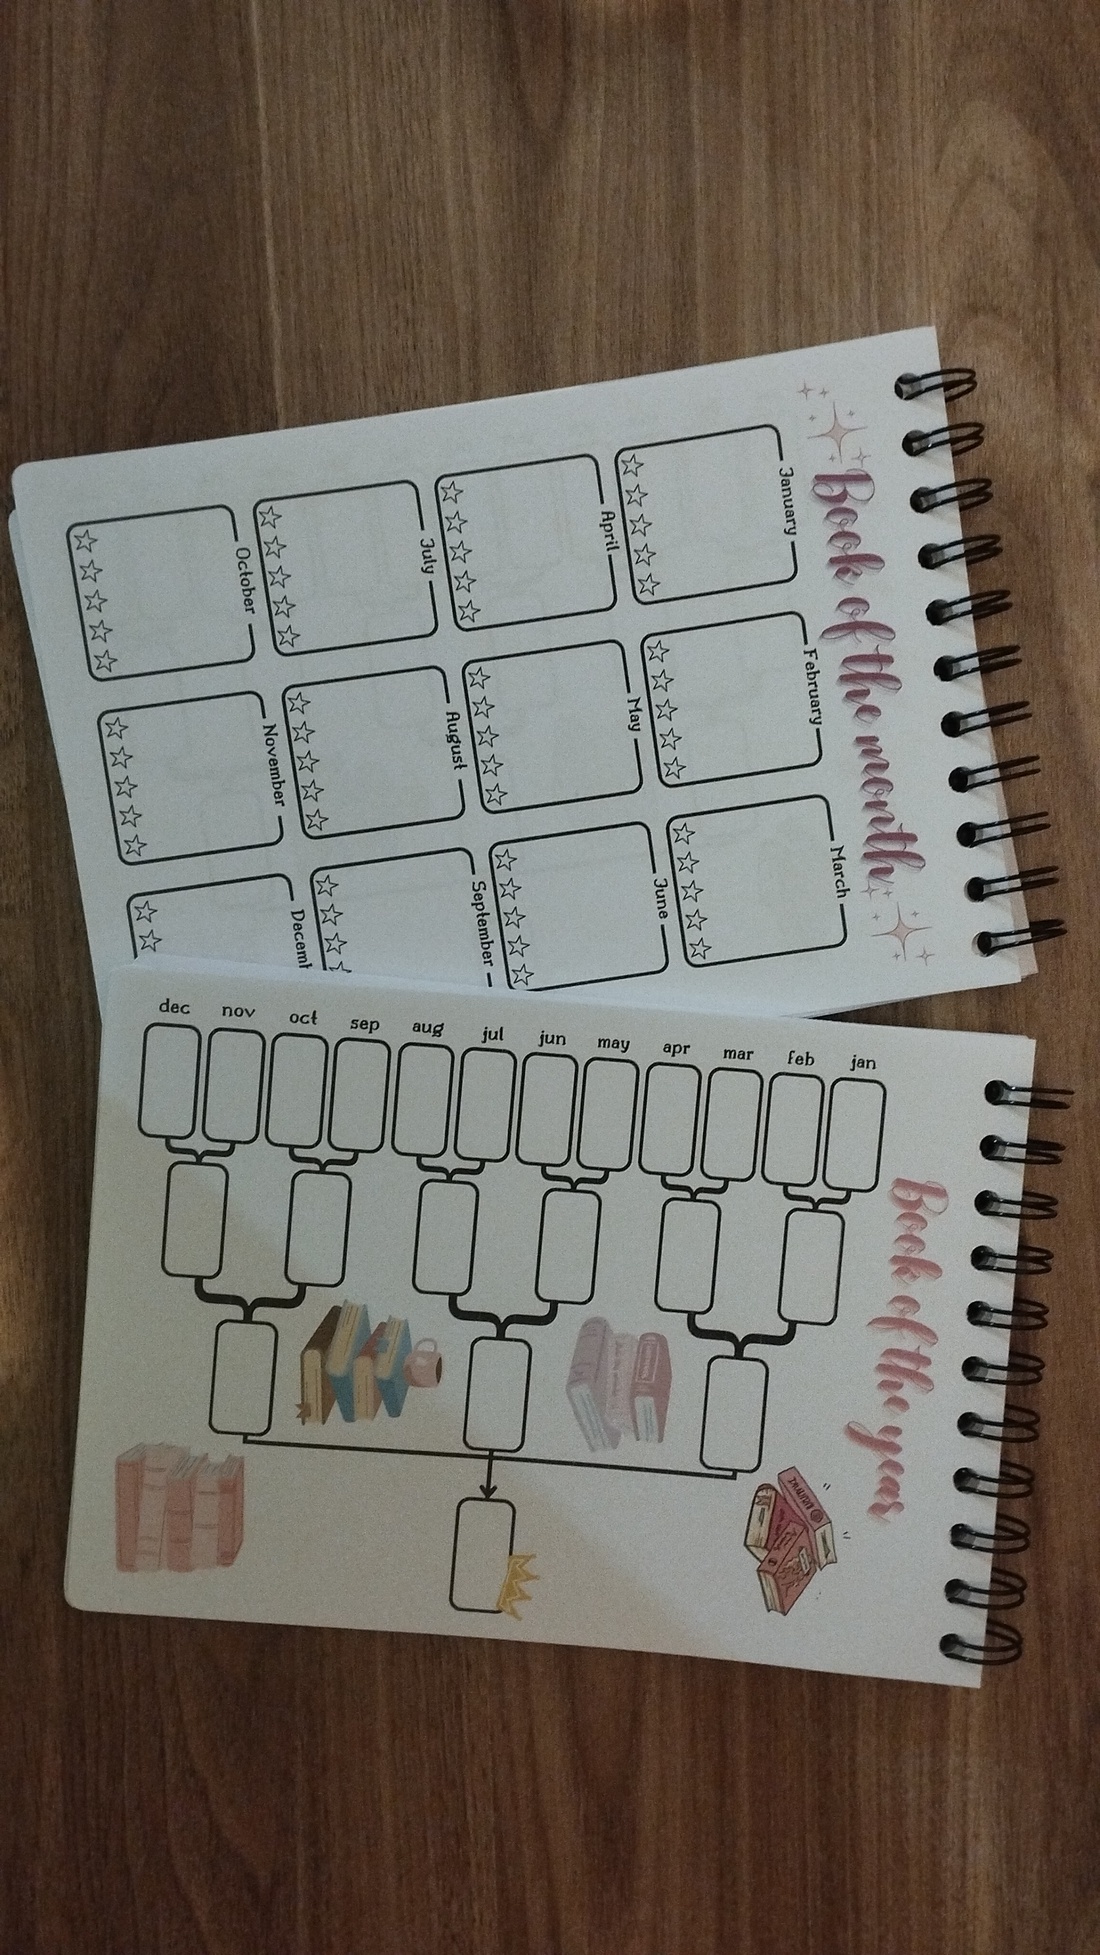 Book of the month
January
February
March
April
May
June
July
August
September
October
November
Decemb
Book of the year
dec nov oct sep aug jul jun may apr mar feb jan